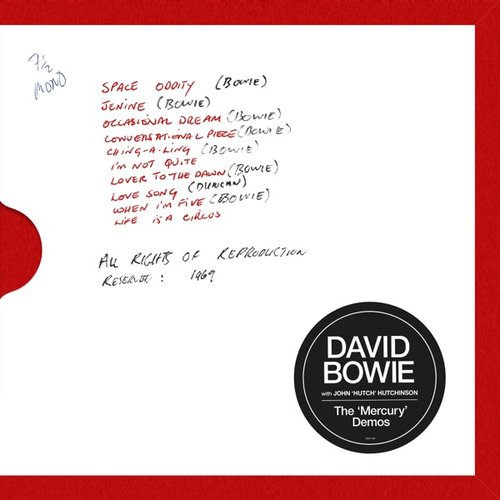 7½
MONO
SPACE ODDITY (BOWIE)
JENINE (BOWIE)
OCCASIONAL DREAM (BOWIE)
CONVERSATIONAL PIECE (BOWIE)
CHING-A-LING (BOWIE)
I'M NOT QUITE
LOVER TO THE DAWN (BOWIE)
LOVE SONG (DUNCAN)
WHEN I'M FIVE (BOWIE)
LIFE IS A CIRCUS
ALL RIGHTS OF REPRODUCTION
RESERVED: 1969
DAVID
BOWIE
with JOHN 'HUTCH' HUTCHINSON
The 'Mercury'
Demos